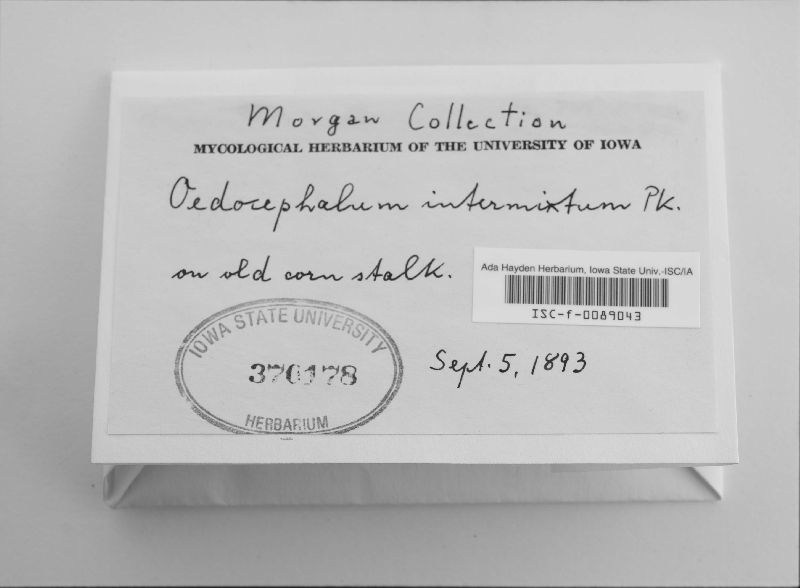 Morgan Collection
MYCOLOGICAL HERBARIUM OF THE UNIVERSITY OF IOWA
Oedocephalum intermixtum Pk.
on old corn stalk.
Ada Hayden Herbarium, Iowa State Univ.-ISC/IA
ISC-f-0089043
IOWA STATE UNIVERSITY
370178
HERBARIUM
Sept. 5, 1893